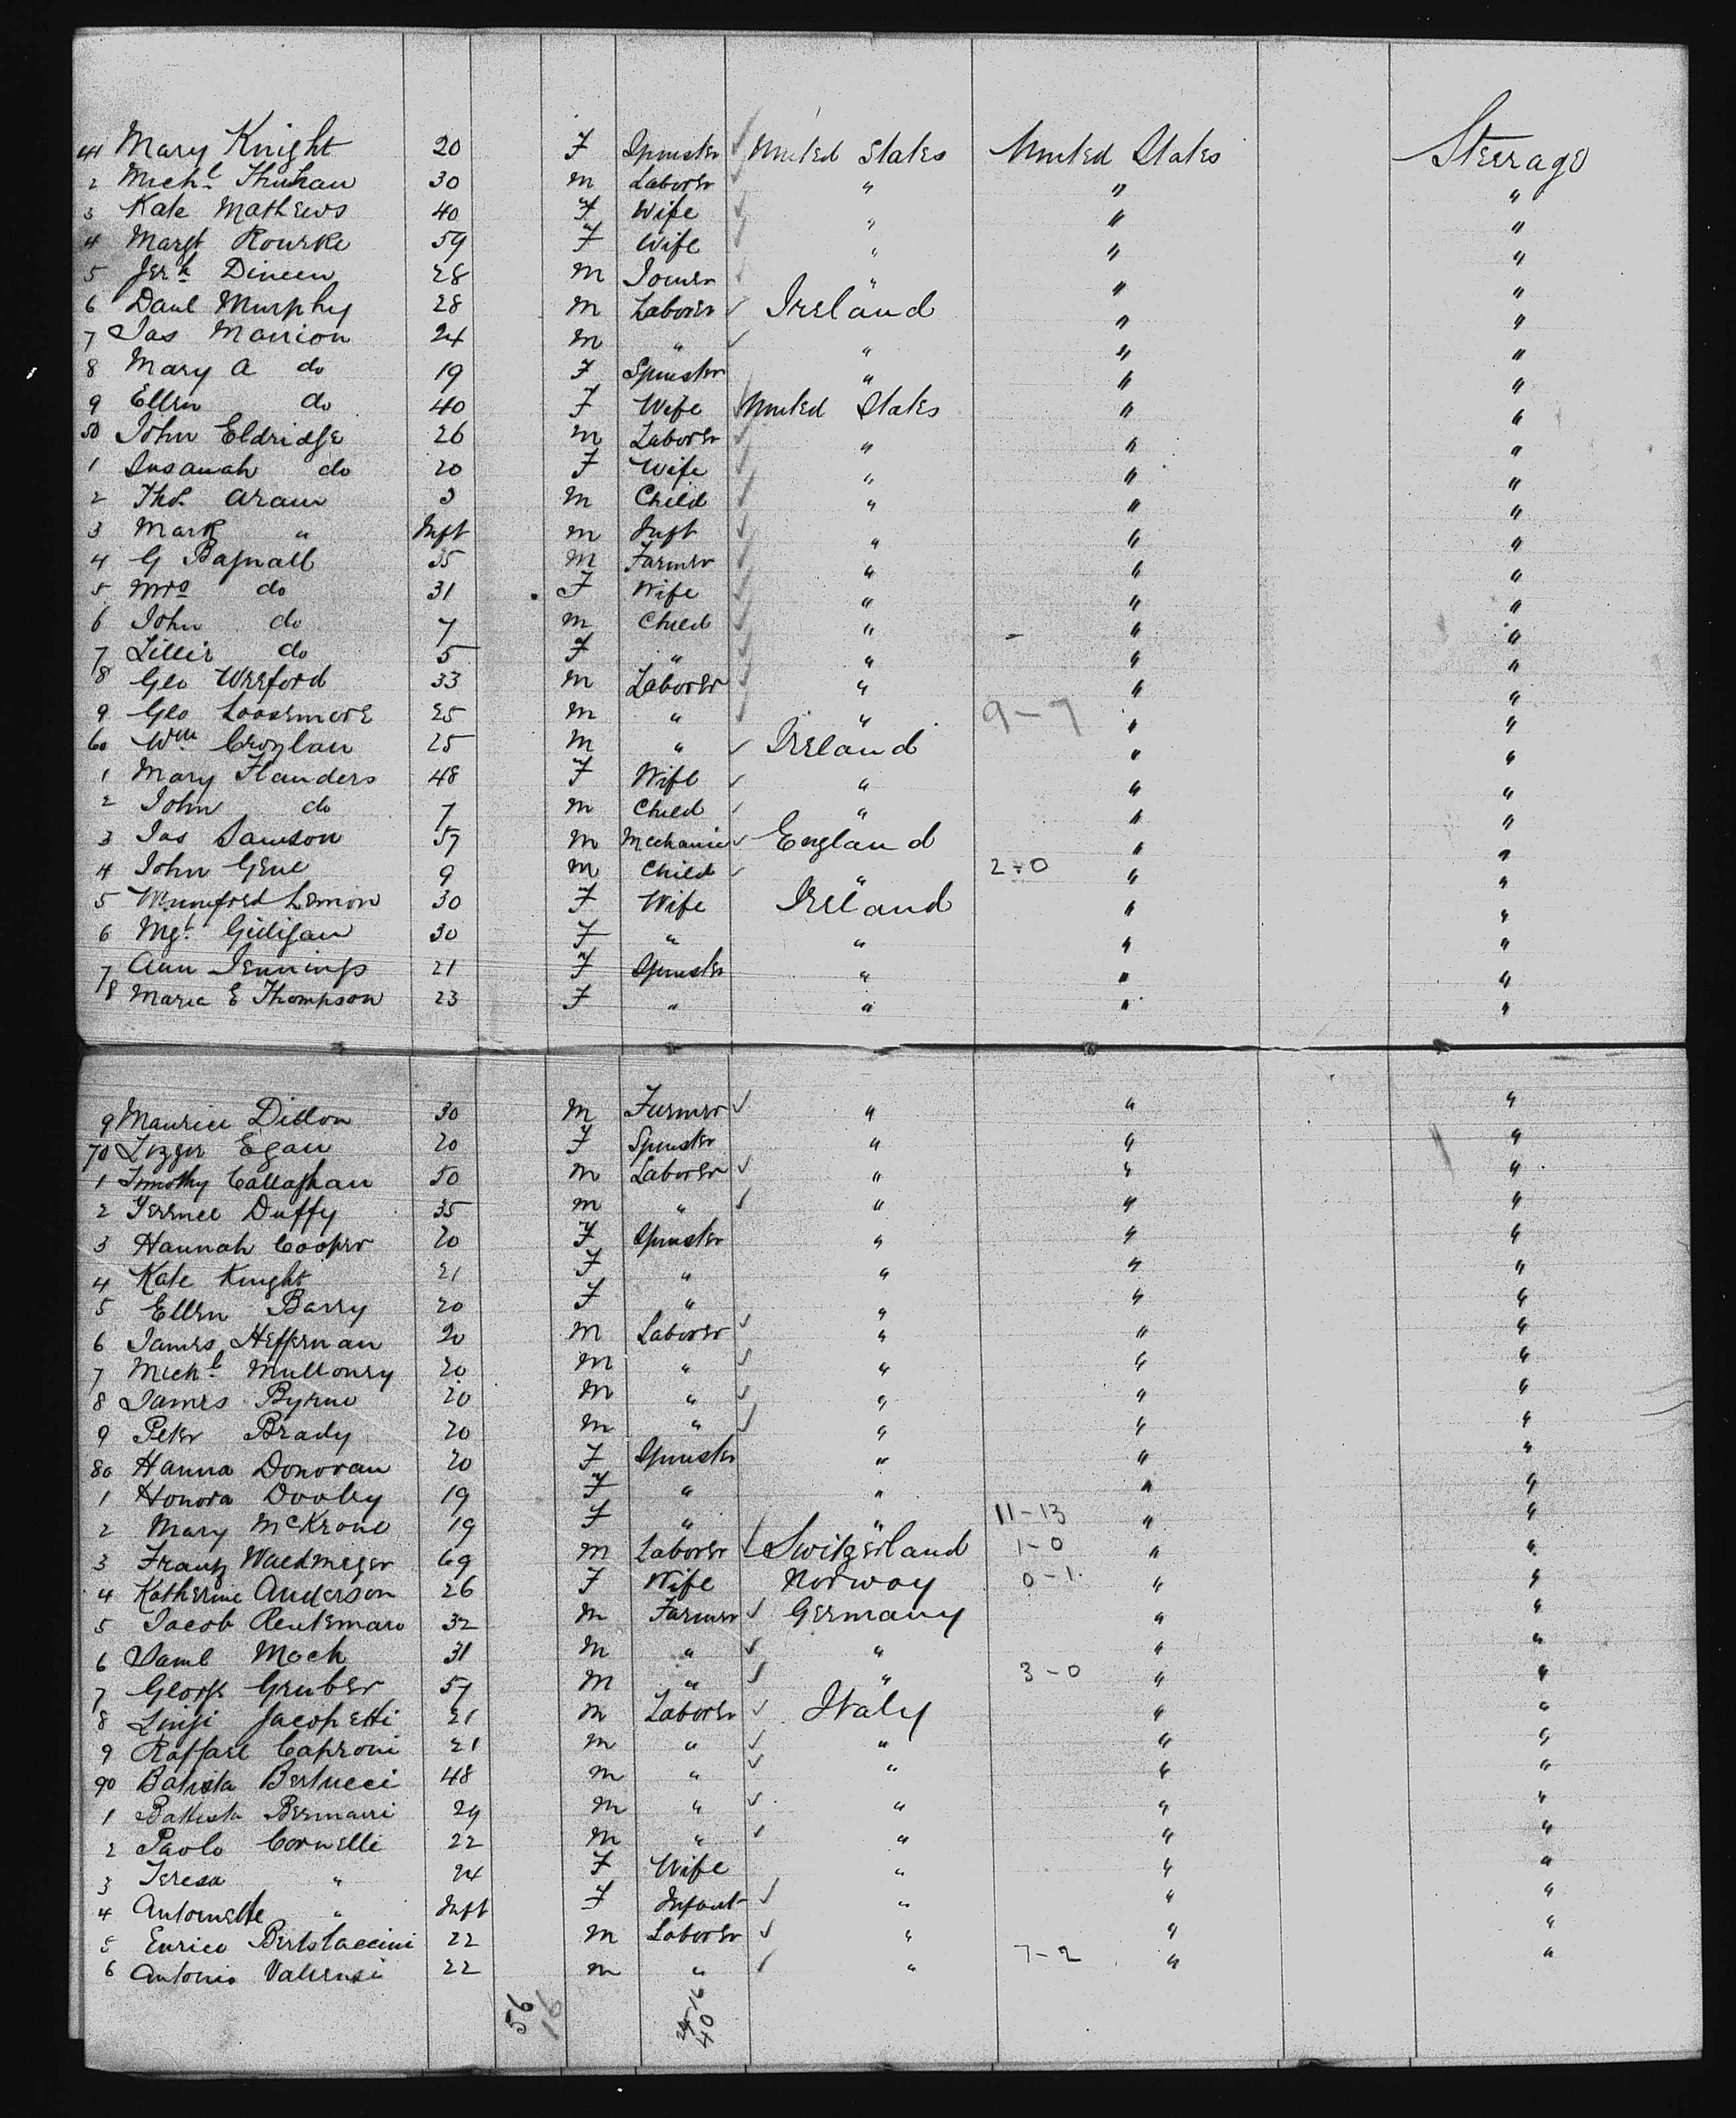 41 Mary Knight 20 F Spinster United States United States Steerage
2 Michl 30 m Laborer " " "
3 Kate Mathews 40 F Wife " " "
4 Margt Rourke 59 F Wife " " "
5 Jerh Dineen 28 m Joiner " " "
6 Danl Murphy 28 m Laborer Ireland " "
7 Jas Manion 24 m " " " "
8 Mary A do 19 F Spinster " " "
9 Ellen do 40 F Wife United States " "
50 John Eldridge 26 m Laborer " " "
1 Susanah do 20 F Wife " " "
2 Thos Aram 3 m Child " " "
3 Mark " Inft m Inft " " "
4 G Bagnall 35 m Farmer " " "
5 Mrs do 31 F Wife " " "
6 John do 7 m Child " " "
7 Lillie do 5 F " " " "
8 Geo Wreford 33 m Laborer " " "
9 Geo Loosemore 25 m " " 9-7 " "
60 Wm 25 m " Ireland " "
1 Mary Flanders 48 F Wife " " "
2 John do 7 m Child " " "
3 Jas Samson 57 m Mechanic England " "
4 John Gene 9 m Child " 2-0 " "
5 Winneford Lemon 30 F Wife Ireland " "
6 Mgt Gilligan 30 F " " " "
7 Ann Jennings 21 F Spinster " " "
8 Maria E Thompson 23 F " " " "
9 Maurice Dillon 30 m Farmer " " "
70 Lizzie Egan 20 F Spinster " " "
1 Timothy Callaghan 50 m Laborer " " "
2 Terence Duffy 35 m " " " "
3 Hannah Cooper 20 F Spinster " " "
4 Kate Knight 21 F " " " "
5 Ellen Barry 20 F " " " "
6 James Heffernan 20 m Laborer " " "
7 Michl Mullonry 20 m " " " "
8 James Byrne 20 m " " " "
9 Peter Brady 20 m " " " "
80 Hanna Donovan 20 F Spinster " " "
1 Honora Dooley 19 F " " " "
2 Mary McKrone 19 F " " 11-13 " "
3 Frantz Waldmeger 69 m Laborer Switzerland 1-0 " "
4 Katherine Anderson 26 F Wife Norway 0-1 " "
5 Jacob 32 m Farmer Germany " "
6 Saml Moch 31 m " " " "
7 George Gruber 57 m " " 3-0 " "
8 Luigi Jacopetti 21 m Laborer Italy " "
9 Raffael Caproni 21 m " " " "
90 Batista Bertucci 48 m " " " "
1 Battista 29 m " " " "
2 Paolo Cornelli 22 m " " " "
3 Teresa " 24 F Wife " " "
4 Antoinette " Inft F Infant " " "
5 Enrico Bertstaccini 22 m Laborer " " "
6 Antonio Valerusi 22 m " " 7-2 " "
56
16
24-16
40